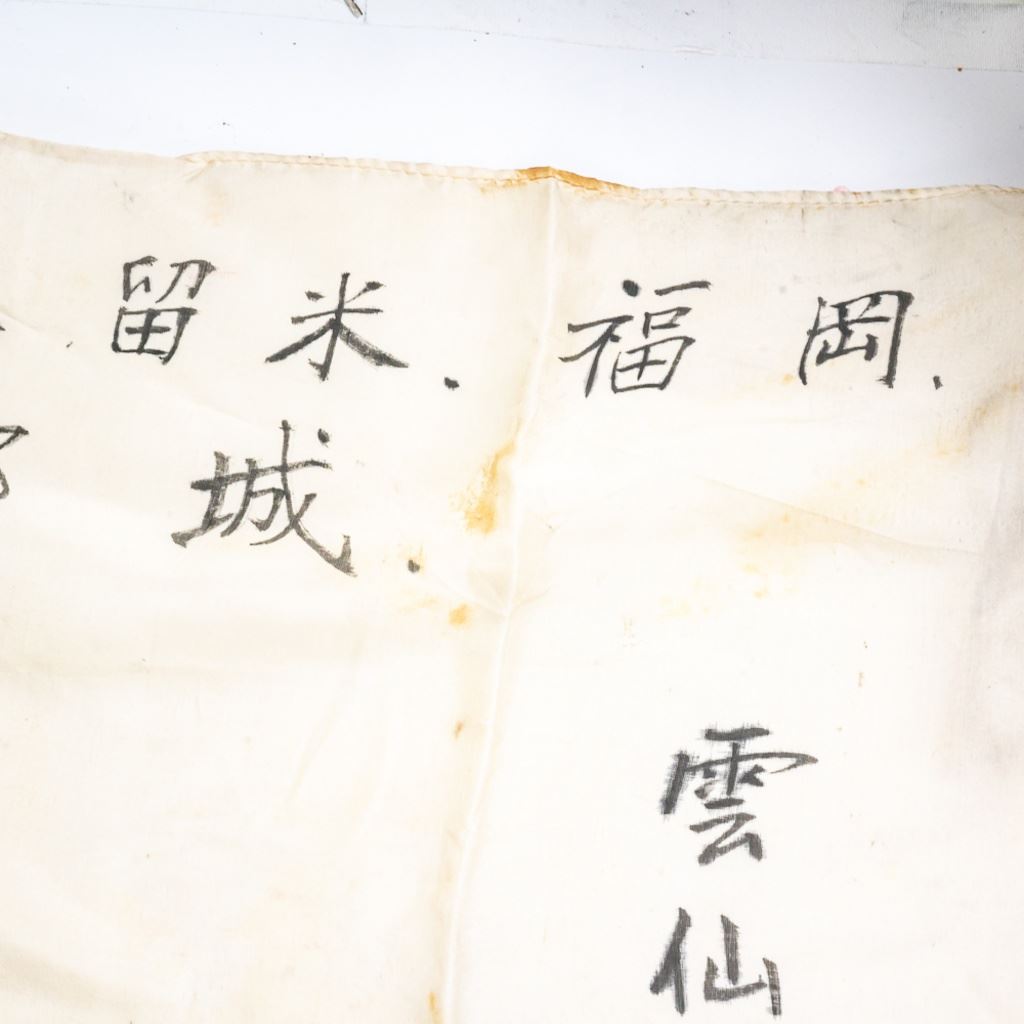 留米.福岡.
城.
雲仙